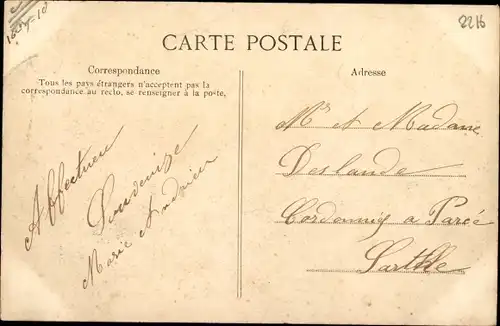 2216
CARTE POSTALE
Correspondance
Tous les pays étrangers n'acceptent pas la
correspondance au recto, se renseigner à la poste.
Adresse
Affectueu
Souvenire
Marie
Mr et Madame
Deslande
Cordonnier a Parcé
Sarthe